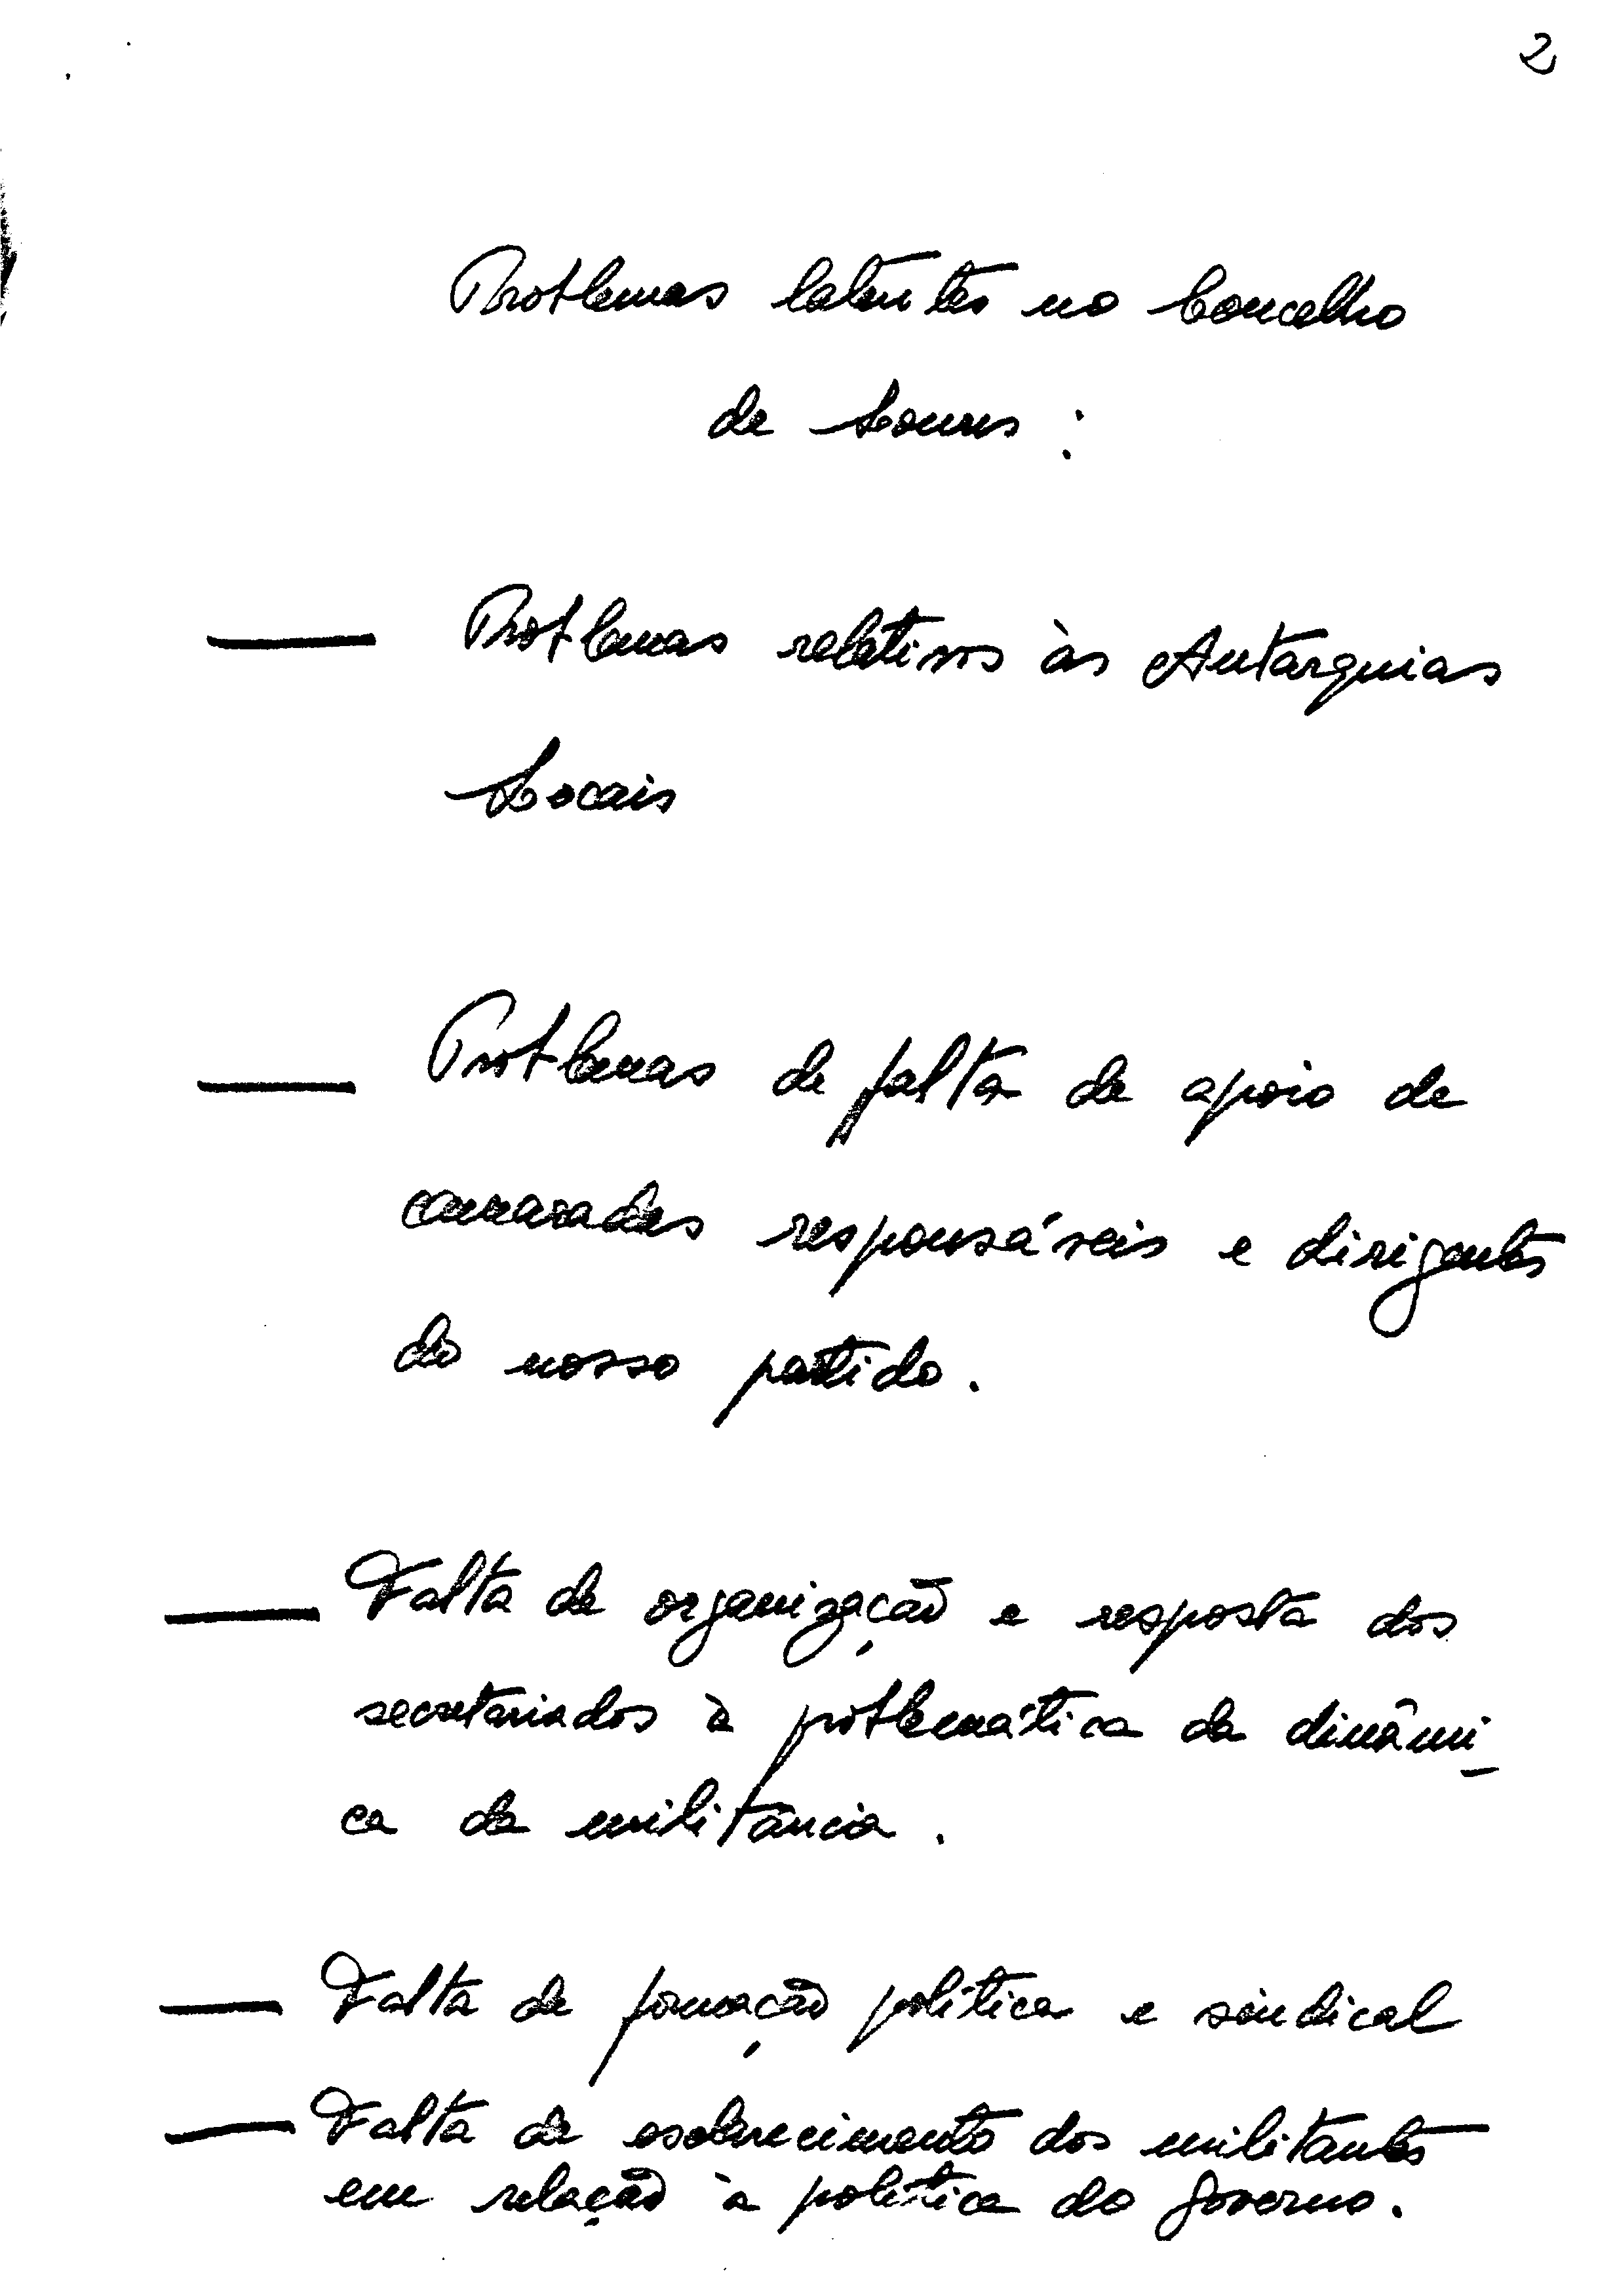 2
Problemas latentes no Concelho
de Loures :
— Problemas relativos às Autarquias
Locais
— Problemas de falta de apoio de
camaradas responsáveis e dirigentes
do nosso partido.
— Falta de organização e resposta dos
secretariados à problemática da dinâmi-
ca da militância.
— Falta de formação política e sindical
— Falta de esclarecimento dos militantes
em relação à política do governo.